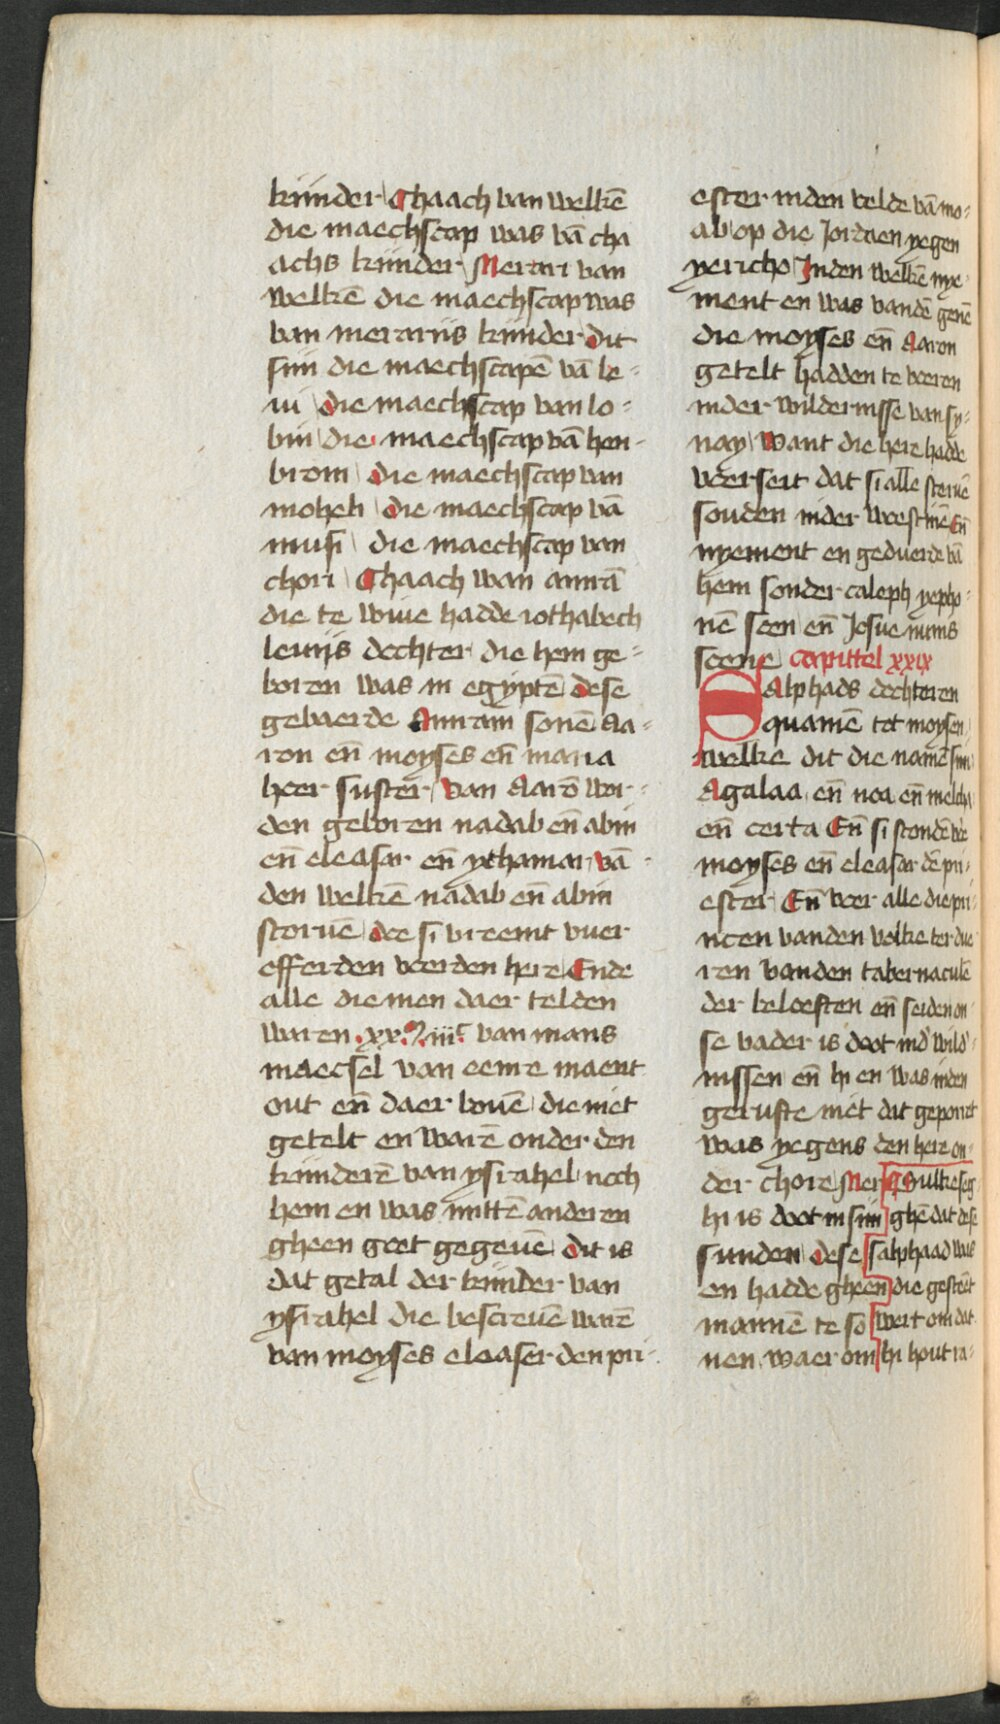 kinder Chaach van welkē
die maechscap was vā cha
achs kinder Merari van
welkē die maechscap was
van merariis kinder dit
siin die maechscapē vā le-
ui die maechscap van lo-
bni die maechscap vā hen-
brom die maechscap van
moheli die maechscap vā
musi die maechscap van
chori Chaach wan amrā
die te wiue hadde iothabech
leuiis dochter die hem ge-
boren was in egyptē dese
gebaerde Amram sonē Aa-
ron eñ moyses eñ maria
heer suster van Aarō wor-
den geboren nadab eñ abiu
eñ eleasar eñ ythamar vā
den welkē nadab eñ abiu
storuē doe si vreemt vuer
offerden voerden here Ende
alle die men daer telden
waren .xx.M. iiiᶜ van mans
maecsel van eenre maent
out eñ daer bouē die niet
getelt en warē onder den
kinderē van ysrahel noch
hem en was mittē anderen
gheen goet gegeuē dit is
dat getal der kinder van
ysrahel die bescreuē warē
van moyses eleaser den pri-
ester inden velde vā mo-
ab op die Jordaen yegen
yericho Inden welkē nye-
ment en was vandē genē
die moyses eñ Aaron
getelt hadden te voeren
inder wildernisse van sy-
nay want die here hadde
voerseit dat si alle steruē
souden inder woestinē Eñ
nyement en geduerde vā
hem sonder caleph yepho-
nē soen eñ Josue nuns
soene capittel xxix
Salphads dochteren
quamē tot moysen
welke dit die namē siin
Agalaa eñ noa eñ melcha
eñ certa Eñ si stondē voer
moyses eñ eleasar dē pri-
ester Eñ voer alle die pri-
ncen vanden volke ter due
ren vanden tabernaculē
der beloeften eñ seiden on-
se vader is doot ind' wild'-
nissen eñ hi en was inden
geruste niet dat geporret
was yegens den here on-
der chore Mer
hi is doot in siin
sunden dese
en hadde gheen
mannē te so
nen waer om
Sulke seg-
ghē dat dese
salphaad was
die gesteēt
wert om dat
hi hout ra-